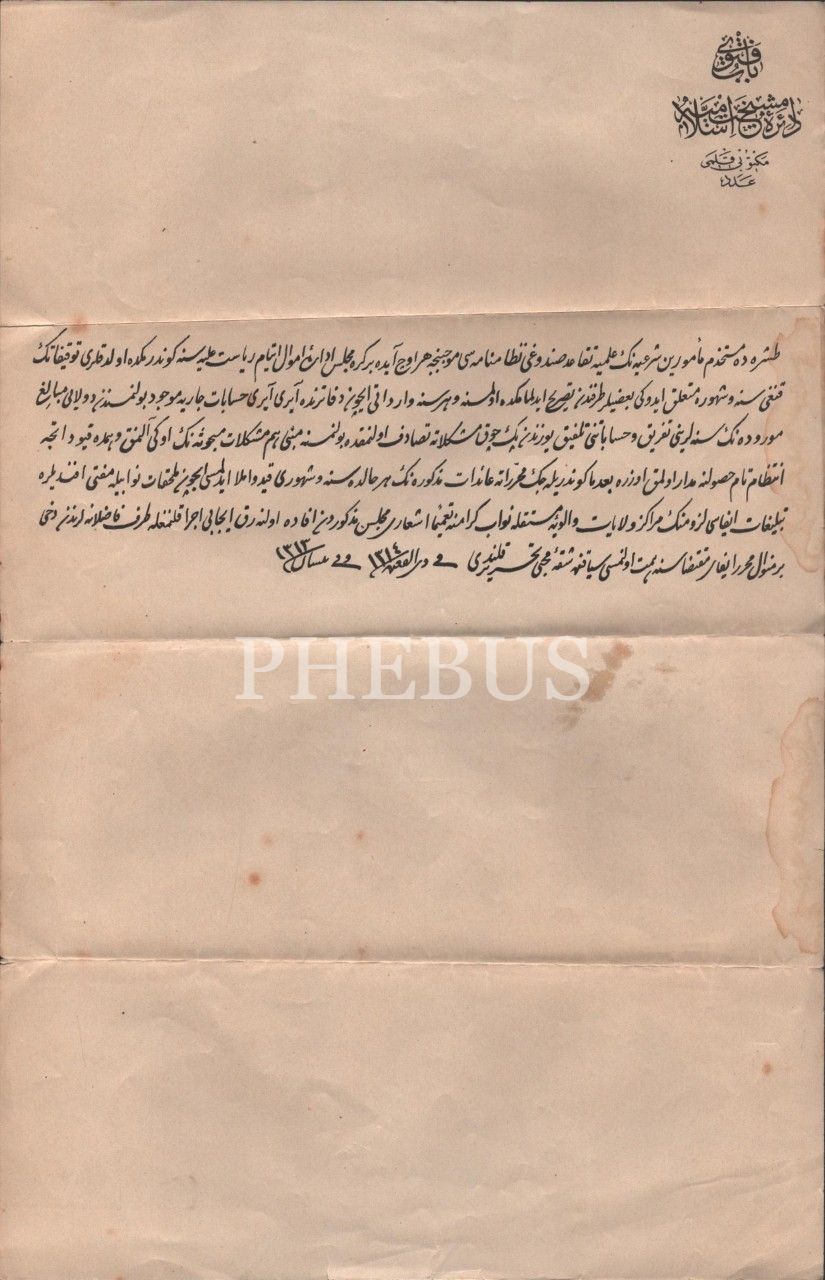 باب فتوى
دائرۀ مشيخت اسلاميه
مكتوبى قلمى
عدد
طشره ده مستخدم مأمورين شرعيه نك علميه تقاعد صندوغى نظامنامه سى موجبنجه هر اوچ آيده بر كره مجلس ادارۀ اموال ايتام رياست عليه سنه كوندرمكده اولدقلرى توقيفاتك
قنغى سنه و شهوره متعلق ايدوكى بعضيلر طرفندن تصريح ايدلمامكده اولمسنه و هر سنه وارداتى ايچون دفاترنده آيرى آيرى حسابات جاريه موجود بولنمسندن دولايى مبالغ
موروده نك سنه لرينى تفريق و حساباتنى تلفيق يوزندن پك چوق مشكلاته تصادف اولنمقده بولنمسنه مبنى هم مشكلات مبحوثه نك اوكى آلنمق و همده قيودانجه
انتظام تام حصولنه مدار اولمق اوزره بعدما كوندريله جك محرراته عائدات مذكوره نك هر حالده سنه و شهورى قيد و املا ايدلمسى ايچون ملحقات نوابيله مفتى افنديلره
تبليغات ايفاسى لزومنك مراكز ولايات و الويۀ مستقله نواب كرامنه تعميما اشعارى مجلس مذكوردن افاده اولنه رق ايجابى اجرا قلنمغله طرف فاضلانه لرندن دخى
بر منوال محرر ايفاى مقتضاسنه همت اولنمسى سياقنده شقۀ محبى تحرير قلندى فى ذى القعده ١٣١٤ و فى نيسان ١٣١٣
PHEBUS